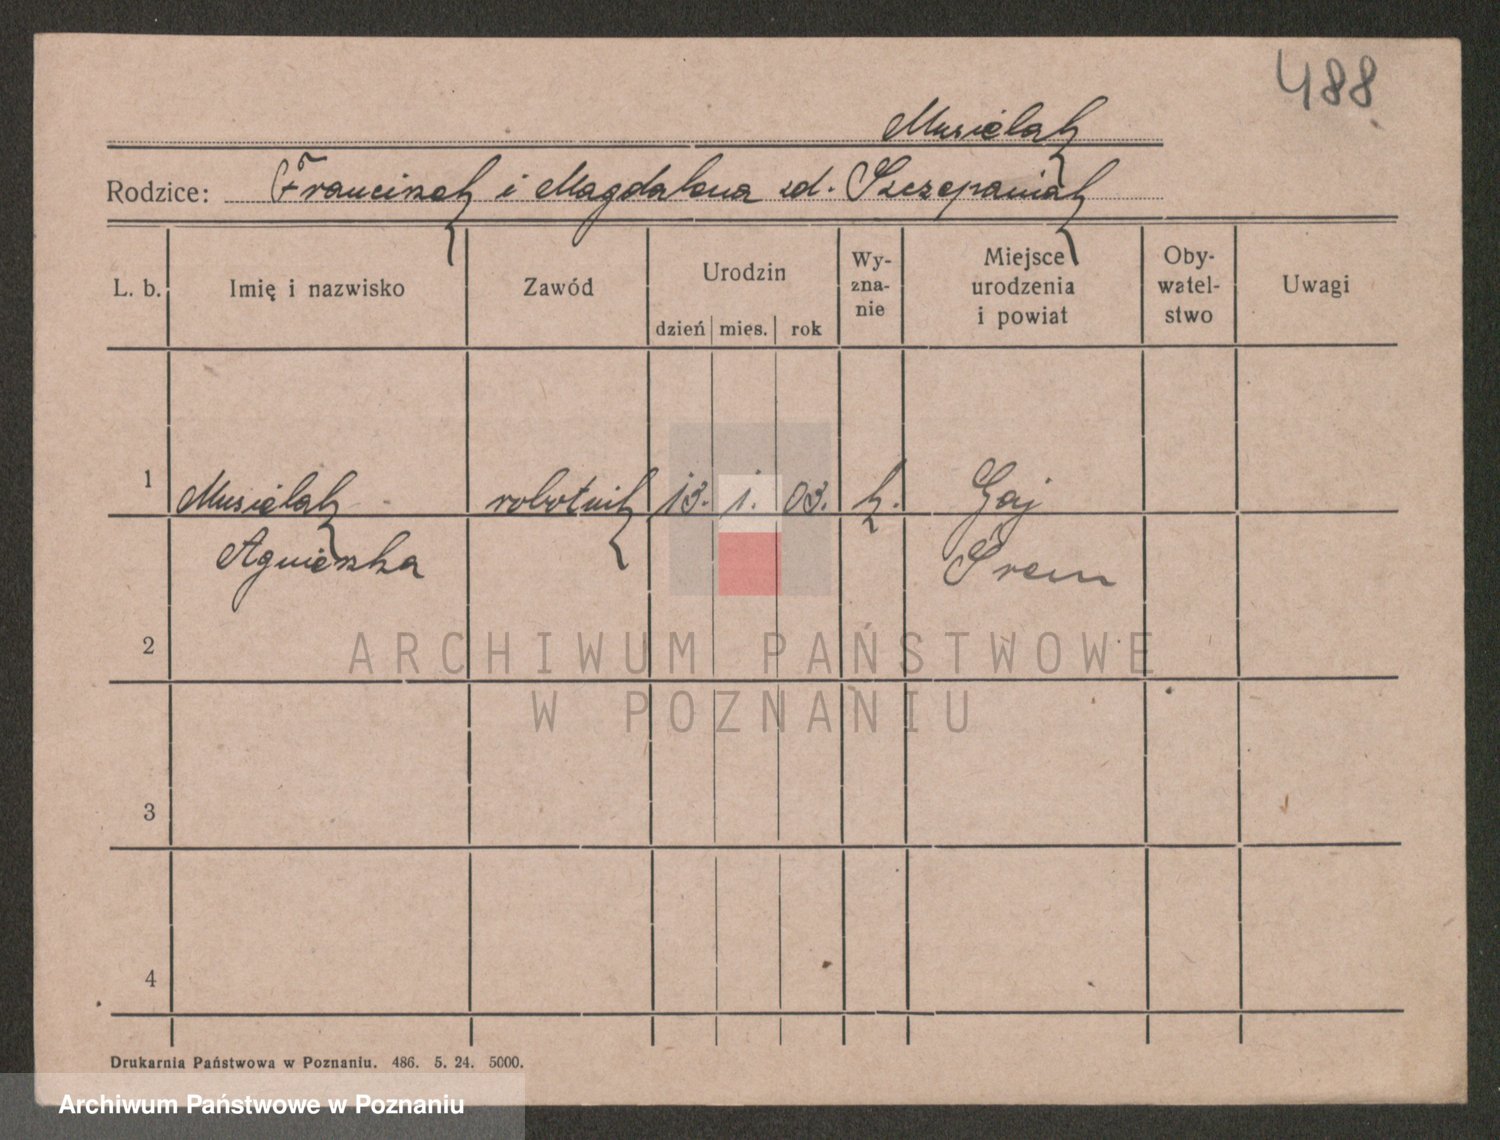 488
Musielak
Rodzice: Franciszek i Magdalena zd. Szczepaniak
L. b. Imię i nazwisko Zawód Urodzin dzień mies. rok Wy-zna-nie Miejsce urodzenia i powiat Oby-watel-stwo Uwagi
1 Musielak robotnik 13. 1. 03. k. Gaj
Agnieszka Śrem
2
ARCHIWUM PAŃSTWOWE
W POZNANIU
3
4
Drukarnia Państwowa w Poznaniu. 486. 5. 24. 5000.
Archiwum Państwowe w Poznaniu